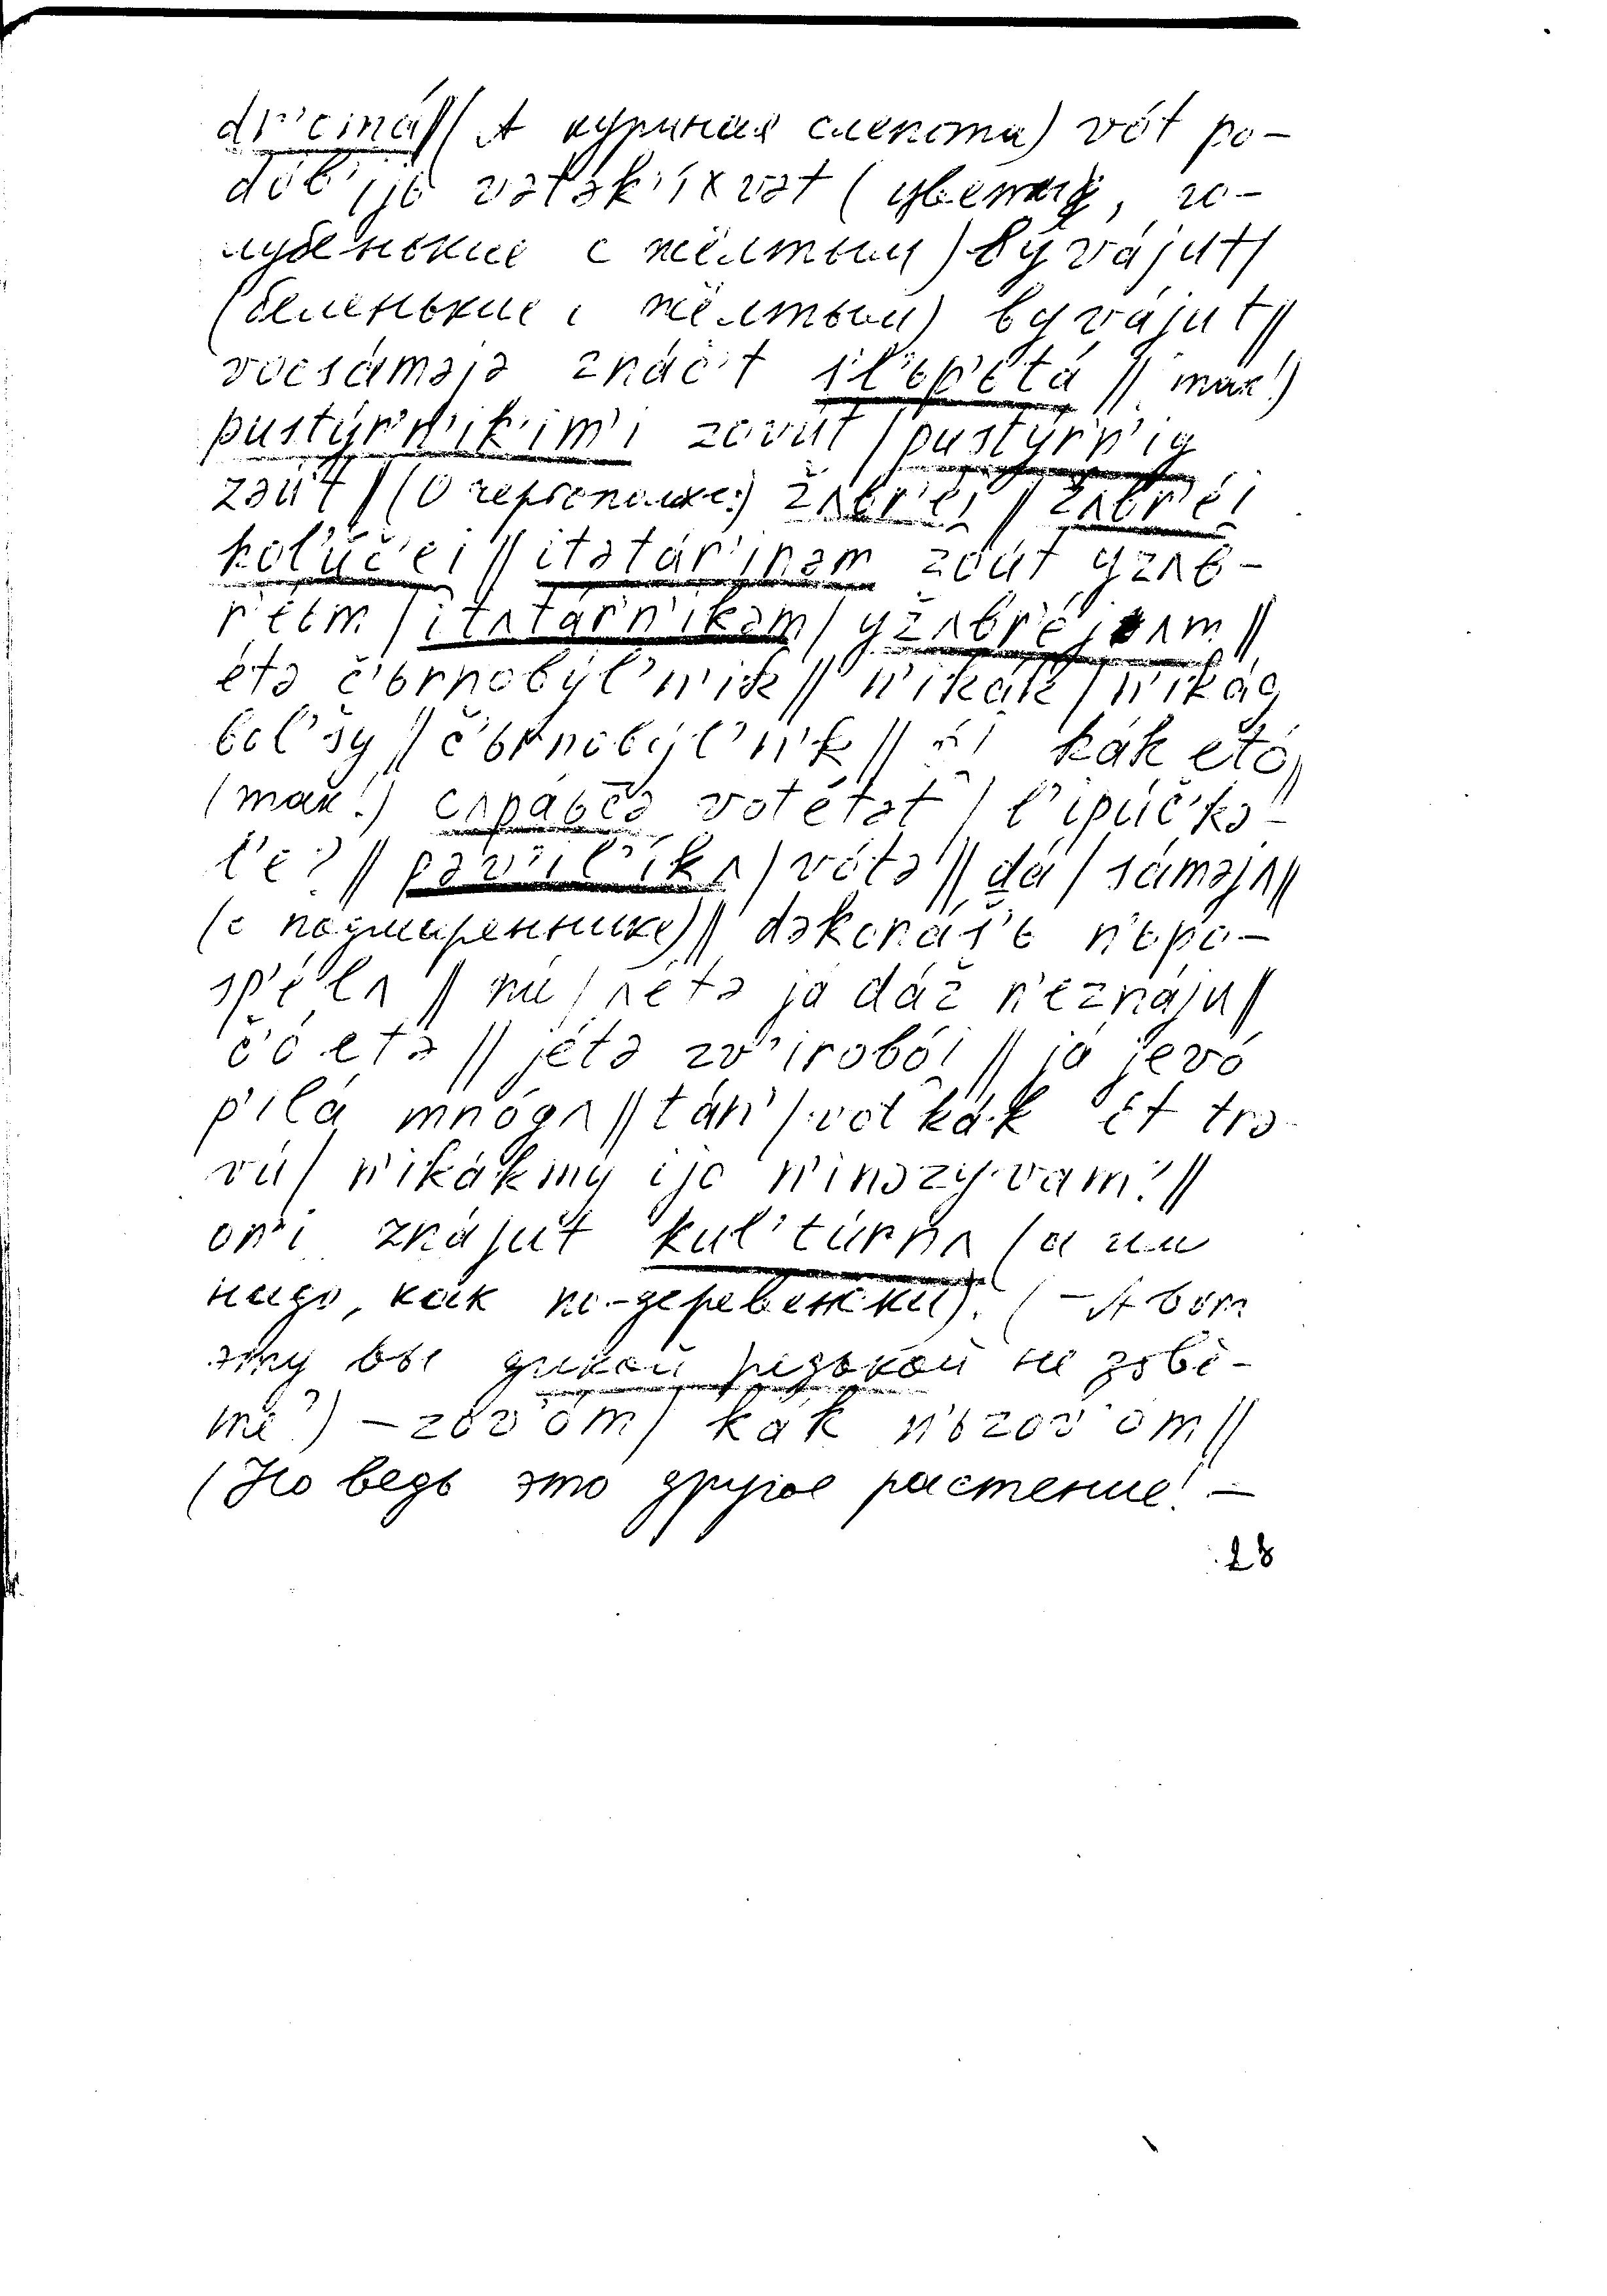 dr'emá // (А куриная слепота) vót po-
dób'ijo vətək'íxvət (цветки, го-
лубенькие с жёлтым) byvájut /
(беленькие с жёлтым) byvájut //
vocsáməjə znáč't sl'ep'etá // (так!)
pustýrn'ik'im'i zovút / pustýrn'ig
zəút // (О чертополохе:) žʌbr'éi̯ // žʌbr'éi̯
kol'úč'ei̯ // itətár'inəm zoút yžʌb-
r'éim / itʌtárn'ikəm / yžʌbr'éjʌm //
étə č'ьrnobýl'n'ik // n'ikák / n'ikág
ból'šy // č'ьrnobýl'n'k // kák etó //
(так!) cʌpáɓcə votétət / l'ipúčkə
l'e? // pəv'il'íkʌ / vótə // dá / sáməjʌ //
(о подмареннике) // dəkonás'ь n'ьpo-
sp'élʌ // nú / nétə já dáž n'eznáju //
č'ó etə // jétə zv'irobói̯ // já jevó
p'ilá mnógʌ // tán' / vot kák ét trə-
vú / n'ikákmy ijo n'inəzyvám? //
on'i znájut kul'túrnʌ (а им
надо, как по-деревенски). (– А вот
эту вы дикой редькой не зовё-
те?) – zov'óm / kák n'ьzov'óm //
(Но ведь это другое растение! –
28